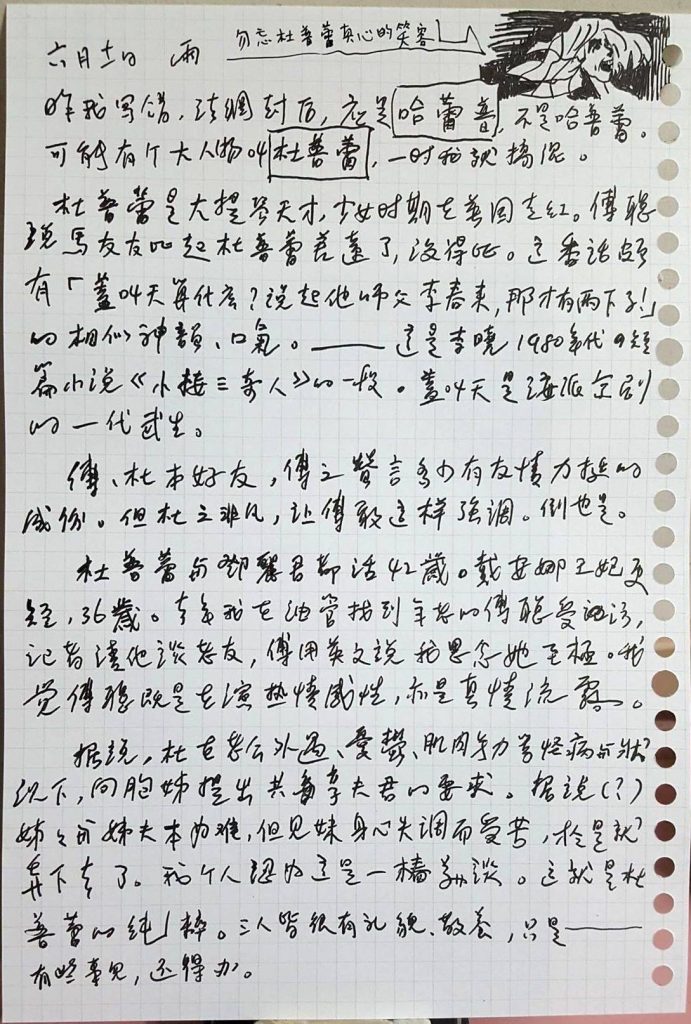 勿忘杜普蕾真心的笑容
六月十一日 雨
昨我写錯，法網封后，应是哈蕾普，不是哈普蕾。
可能有个大人物叫杜普蕾，一时我就搞混。
杜普蕾是大提琴天才，少女时期在英国走紅。傅聪
説馬友友比起杜普蕾差遠了，没得比。这番话頗
有「蓋叫天算什么？说起他师父李春来，那才有两下子!」
的相似神韻、口氣。——这是李曉1980年代的短
篇小说《小楼三奇人》的一段。蓋叫天是海派京剧
的一代武生。
傅、杜本好友，傅之贊言多少有友情力挺的
成份。但杜之非凡，让傅敢这样强调。倒也是。
杜普蕾与鄧麗君都活42歲。戴安娜王妃更
短，36歲。去年我在油管找到年老的傅聪受访，
记者请他谈老友，傅用英文説我思念她至極。我
觉傅聪既是在演热情感性，亦是真情流露。
据说，杜在老公外遇、憂鬱、肌肉无力等怪病的状
况下，向胞姊提出共享夫君的要求。据说(?)
姊与姊夫本为难，但见妹身心失调而受苦，於是就
弄下去了。我个人認为这是一樁美談。这就是杜
普蕾的純粹。三人皆很有礼貌、教養，只是——
有些事儿，还得办。